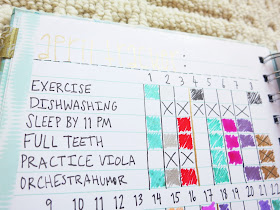 1 2 3 4 5 6 7 8
EXERCISE
DISHWASHING
SLEEP BY 11 PM
FULL TEETH
PRACTICE VIOLA
ORCHESTRAHUMOR
9 10 11 12 13 14 15 16 17 18 19 20 21